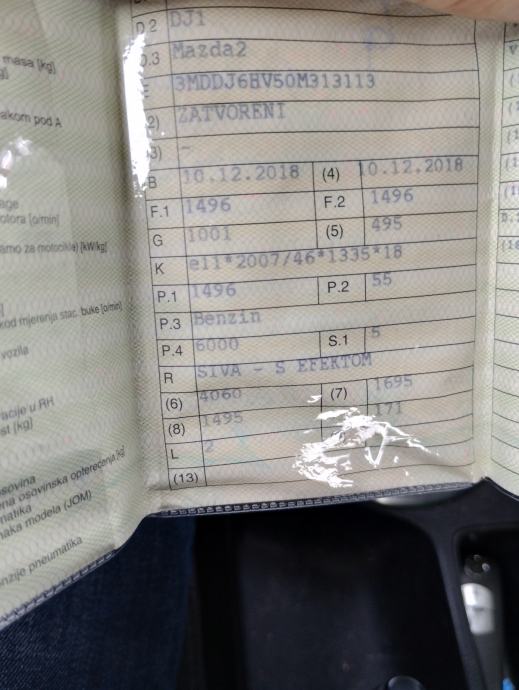 masa [kg]
akom pod A
otora [o/min]
amo za motocikle) [kW/kg]
kod mjerenja stac. buke [o/min]
vozila
acije u RH
st [kg]
osovina
ena osovinska opterećenja [kg]
matika
naka modela (JOM)
nzije pneumatika
D.2 DJ1
D.3 Mazda2
E 3MDDJ6HV50M313113
2) ZATVORENI
3) -
B 10.12.2018 (4) 10.12.2018
F.1 1496 F.2 1496
G 1001 (5) 495
K e11*2007/46*1335*18
P.1 1496 P.2 55
P.3 Benzin
P.4 6000 S.1 5
R SIVA - S EFEKTOM
(6) 4060 (7) 1695
(8) 1495 171
L 2
(13)